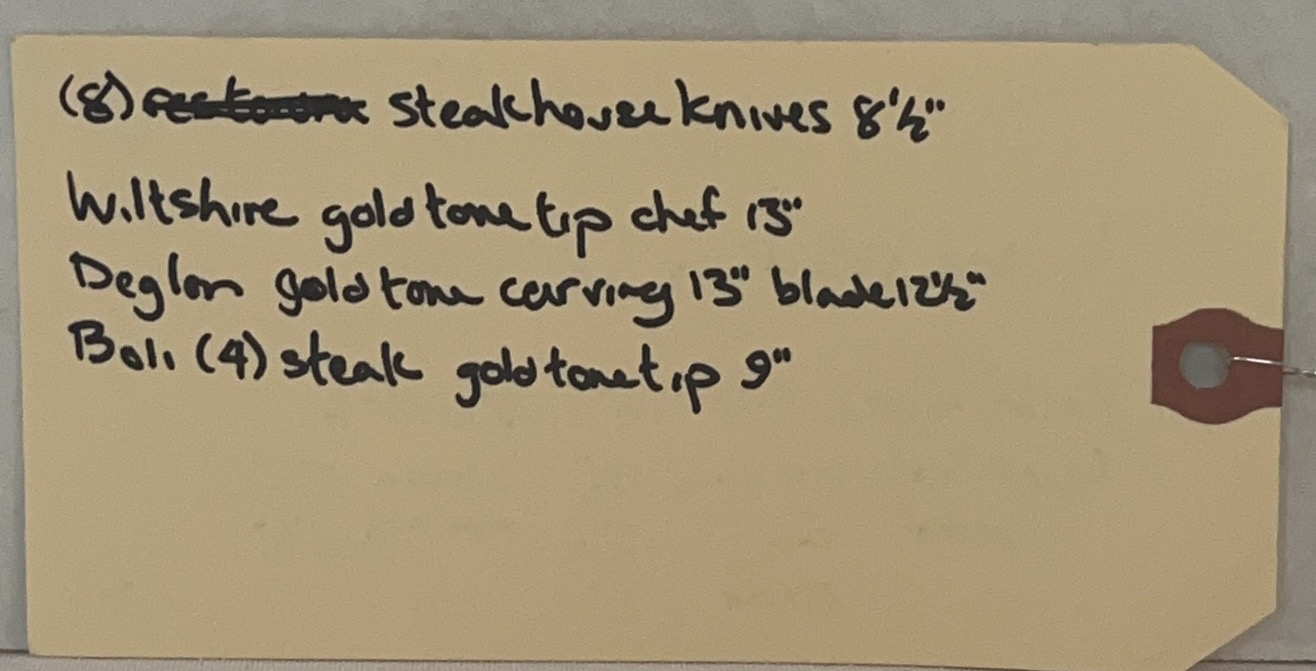 (8) steakhouse knives 8½"
Wiltshire goldtone tip chef 13"
Deglon goldtone carving 13" blade 12½"
Boli (4) steak goldtone tip 9"